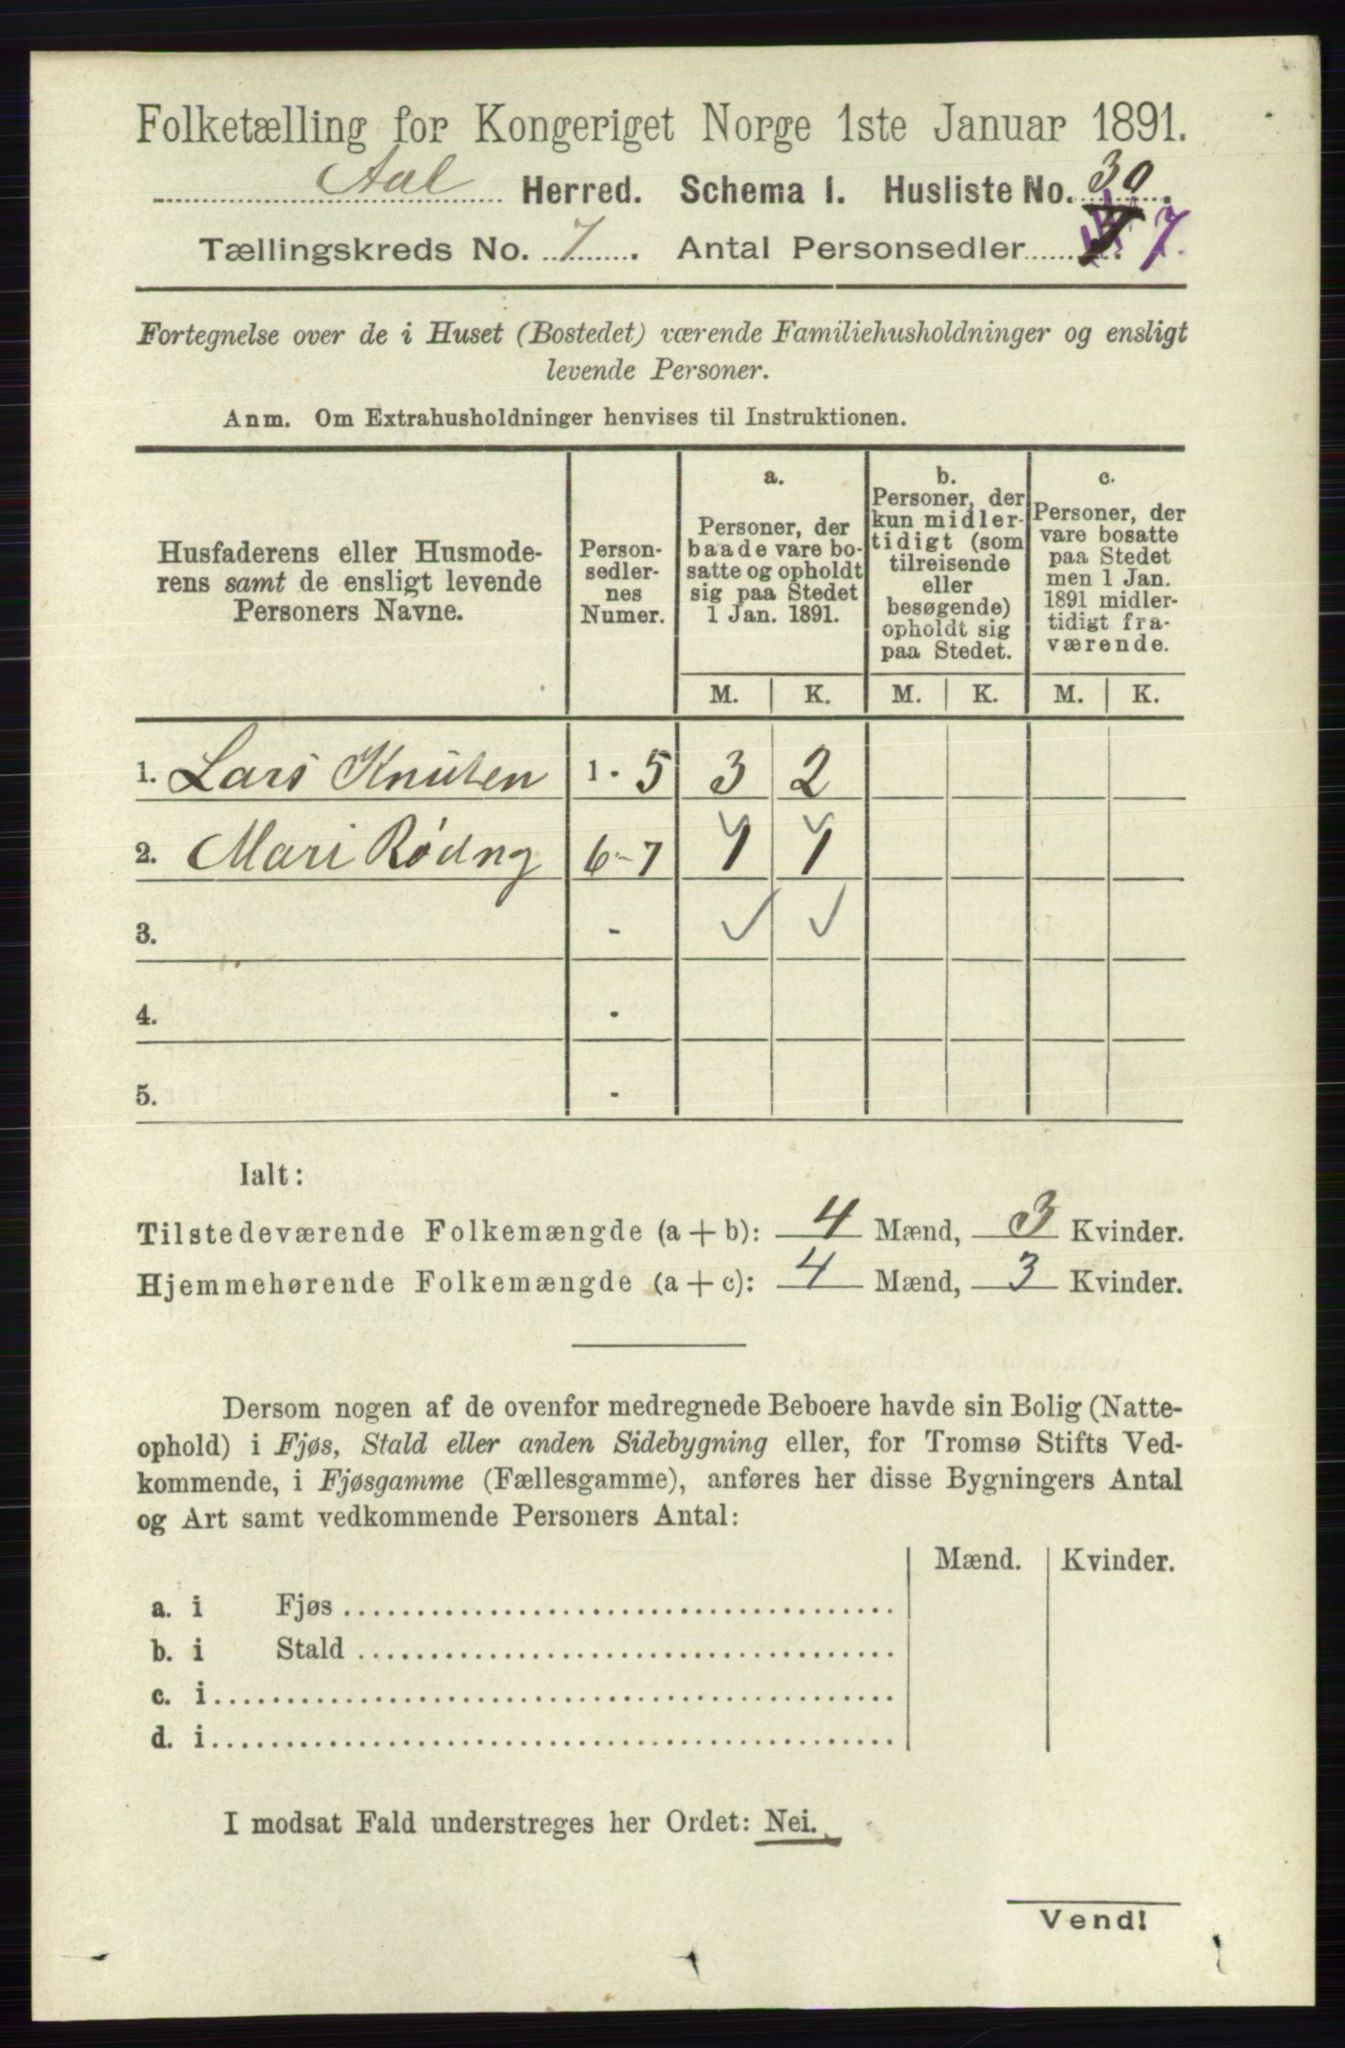 Folketælling for Kongeriget Norge 1ste Januar 1891.
Aal Herred. Schema 1. Husliste No. 30.
Tællingskreds No. 7. Antal Personsedler 7.
Fortegnelse over de i Huset (Bostedet) værende Familiehusholdninger og ensligt
levende Personer.
Anm. Om Extrahusholdninger henvises til Instruktionen.
Husfaderens eller Husmode-
rens samt de ensligt levende
Personers Navne.
Person-
sedler-
nes
Numer.
a.
Personer, der
baade vare bo-
satte og opholdt
sig paa Stedet
1 Jan. 1891.
b.
Personer, der
kun midler-
tidigt (som
tilreisende
eller
besøgende)
opholdt sig
paa Stedet.
c.
Personer, der
vare bosatte
paa Stedet
men 1 Jan.
1891 midler-
tidigt fra-
værende.
M. K. M. K. M. K.
1. Lars Knutsen 1 - 5 3 2
2. Mari 6 - 7 1 1
3. -
4. -
5. -
Ialt:
Tilstedeværende Folkemængde (a + b): 4 Mænd, 3 Kvinder.
Hjemmehørende Folkemængde (a + c): 4 Mænd, 3 Kvinder.
Dersom nogen af de ovenfor medregnede Beboere havde sin Bolig (Natte-
ophold) i Fjøs, Stald eller anden Sidebygning eller, for Tromsø Stifts Ved-
kommende, i Fjøsgamme (Fællesgamme), anføres her disse Bygningers Antal
og Art samt vedkommende Personers Antal:
Mænd. Kvinder.
a. i Fjøs
b. i Stald
c. i
d. i
I modsat Fald understreges her Ordet: Nei.
Vend!